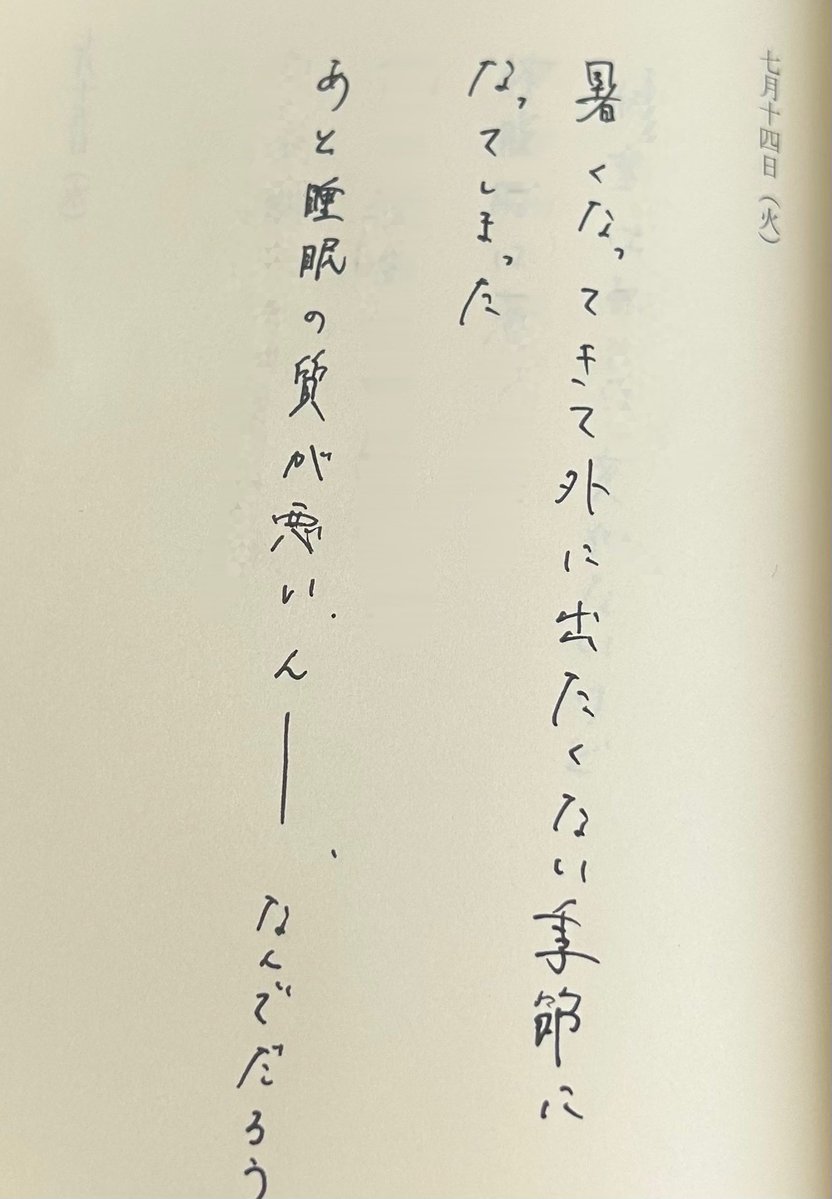 七月十四日(火)
暑くなってきて外に出たくない季節に
なってしまった
あと睡眠の質が悪い、んー、なんでだろう